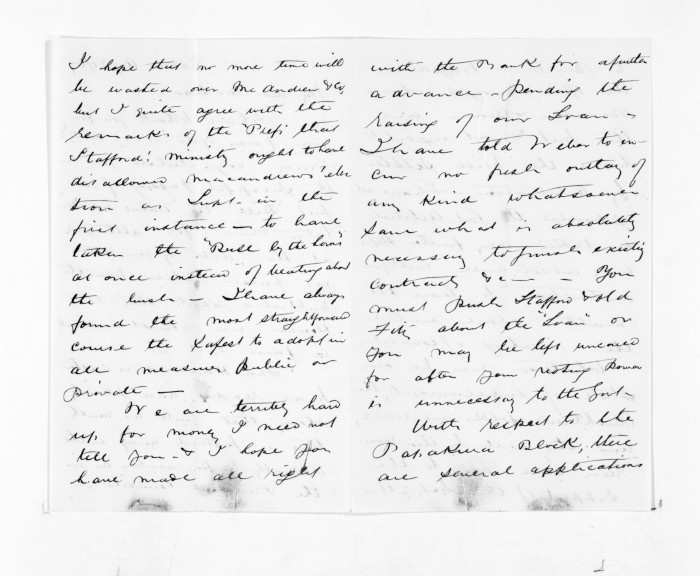 I hope that no more time will
be wasted over McAndrew & Co,
but I quite agree with the
remarks of the Press that
Stafford's ministry ought to have
disallowed Macandrews' elec
tion as Supt. in the
first instance — to have
taken the "Bull by the horns"
at once instead of beating about
the bush — I have always
found the most straightforward
course the safest to adopt in
all measures public or
private —
We are terribly hard
up for money I need not
tell you - & I hope you
have made all right
with the Bank for a further
advance - pending the
raising of our Loan -
I have told Weber to in-
cur no fresh outlay of
any kind whatsoever
save what is absolutely
necessary to finish existing
contracts &c — - You
must push Stafford & old
Fitz about the "Loan" or
you may be left uncared
for after your voting power
is unnecessary to the Govt -
With respect to the
Patakura Block, there
are several applications